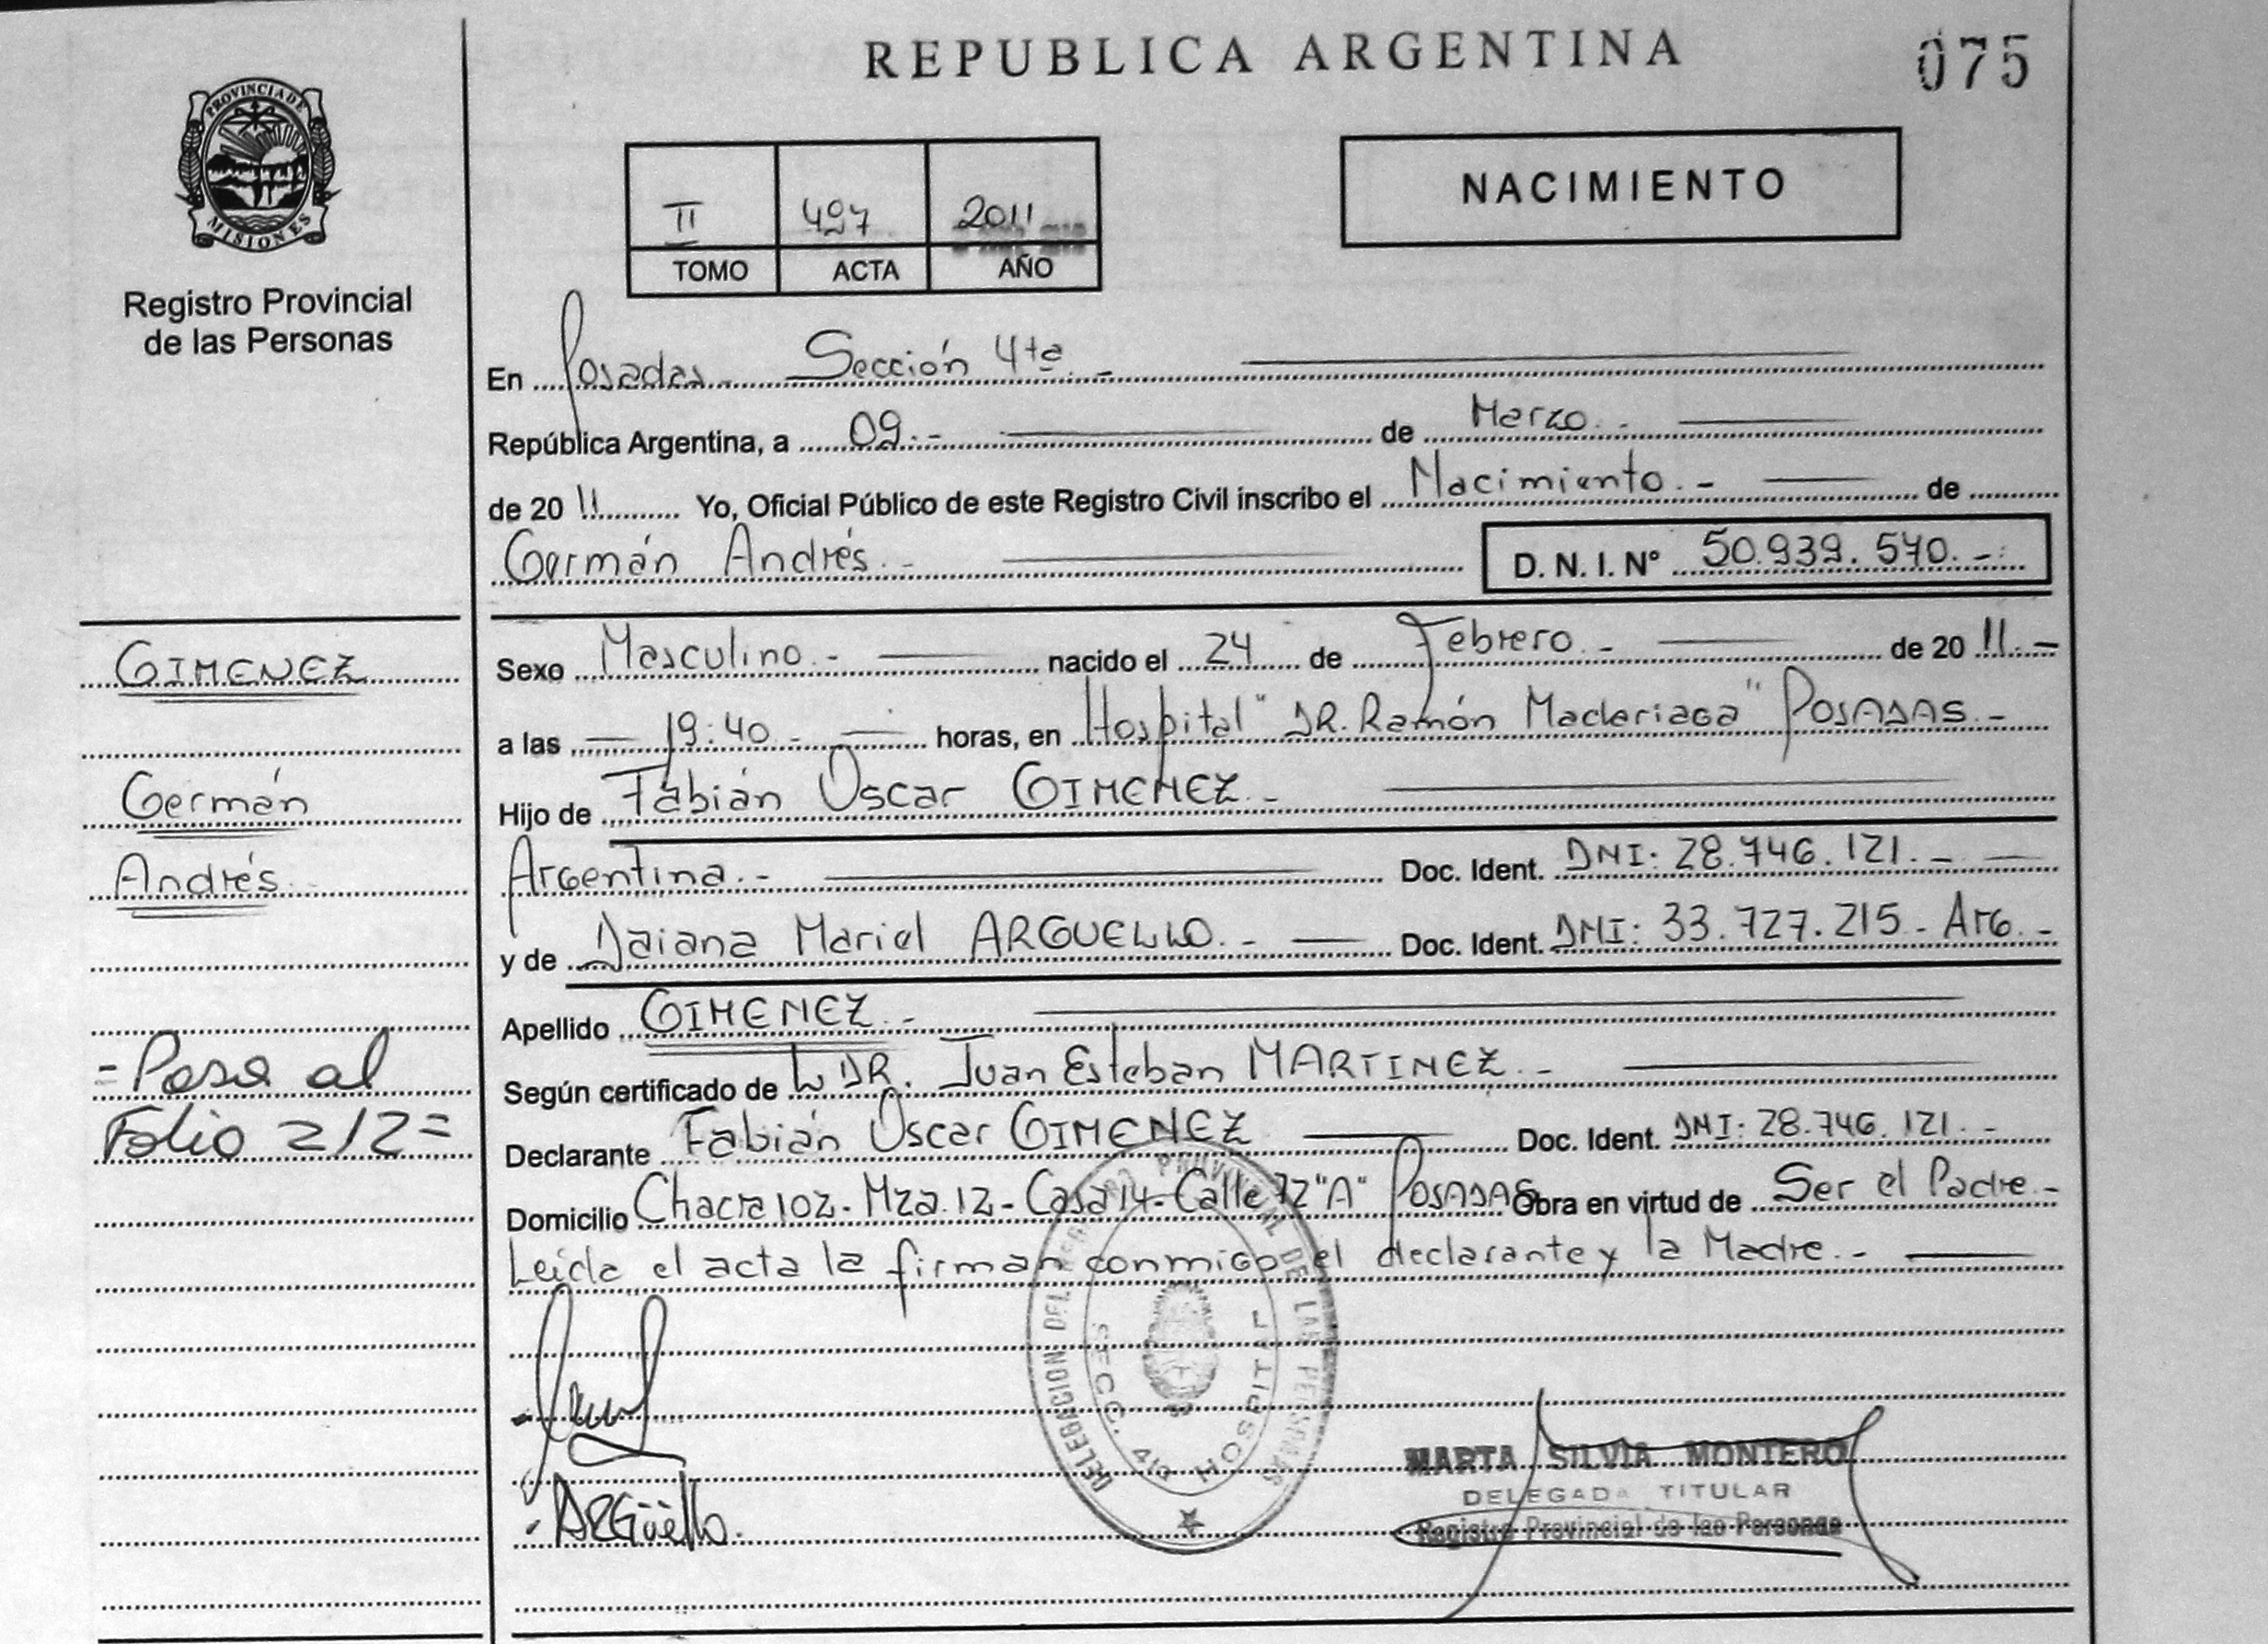 REPUBLICA ARGENTINA
075
PROVINCIA DE
MISIONES
Registro Provincial
de las Personas
II 497 2011
TOMO ACTA AÑO
NACIMIENTO
En Posadas Sección 4ta.-
República Argentina, a 09.- de Marzo.-
de 20 11 Yo, Oficial Público de este Registro Civil inscribo el Nacimiento.- de
Germán Andrés.- D. N. I. Nº 50.939.570.-
GIMENEZ
Germán
Andrés
=Pasa al
Folio 212=
Sexo Masculino.- nacido el 24 de Febrero.- de 20 11.-
a las 19:40.- horas, en Hospital "DR. Ramón Madariaga" POSADAS.-
Hijo de Fabián Oscar GIMENEZ.-
Argentina.- Doc. Ident. DNI: 28.746.121.-
y de Daiana Mariel ARGUELLO.- Doc. Ident. DNI: 33.727.215.- Arg.-
Apellido GIMENEZ.-
Según certificado de DR. Juan Esteban MARTINEZ.-
Declarante Fabián Oscar GIMENEZ Doc. Ident. DNI: 28.746.121.-
Domicilio Chacra 102- Mza.12- Casa 14- Calle 72"A" POSADAS Obra en virtud de Ser el Padre.-
Leída el acta la firman conmigo el declarante y la Madre.-
DELEGACION DEL REGISTRO PROVINCIAL DE LAS PERSONAS
SECC. 4ta HOSPITAL
ARGüello.
MARTA SILVIA MONTERO
DELEGADA TITULAR
Registro Provincial de las Personas